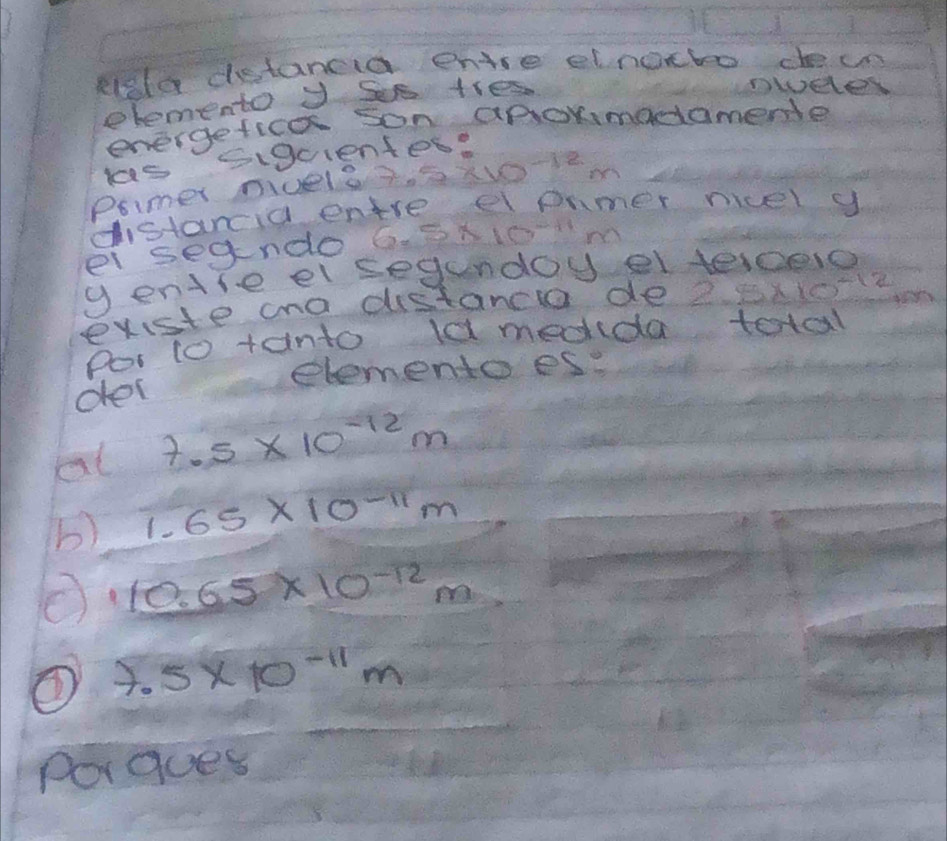 la distancia entre el
elemento y sus tres niveles
energeticos son aproximadamente
las siguientes:
Primer nivel: 7.5x10-12 m
distancia entre el primer nivel y
el segundo 6.5x10-11 m
y entre el segundo y el tercero
existe una distancia de 2.5x10-12 m
Por lo tanto la medida total
del elemento es:
a) 7.5 x 10-12 m
b) 1.65 x 10-11 m
c) 10.65 x 10-12 m
7.5 x 10-11 m
Por ques